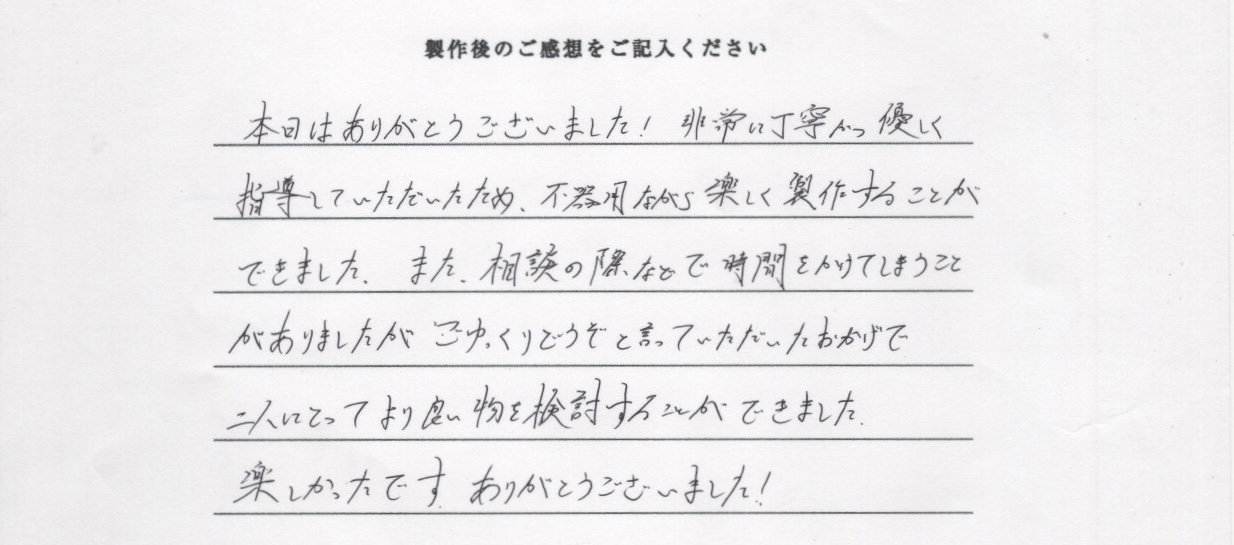 製作後のご感想をご記入ください
本日はありがとうございました! 非常に丁寧かつ優しく
指導していただいたため、不器用ながら楽しく製作することが
できました。また、相談の際などで時間をかけてしまうこと
がありましたが ごゆっくりどうぞと言っていただいたおかげで
二人にとってより良い物を検討することができました。
楽しかったです。ありがとうございました!